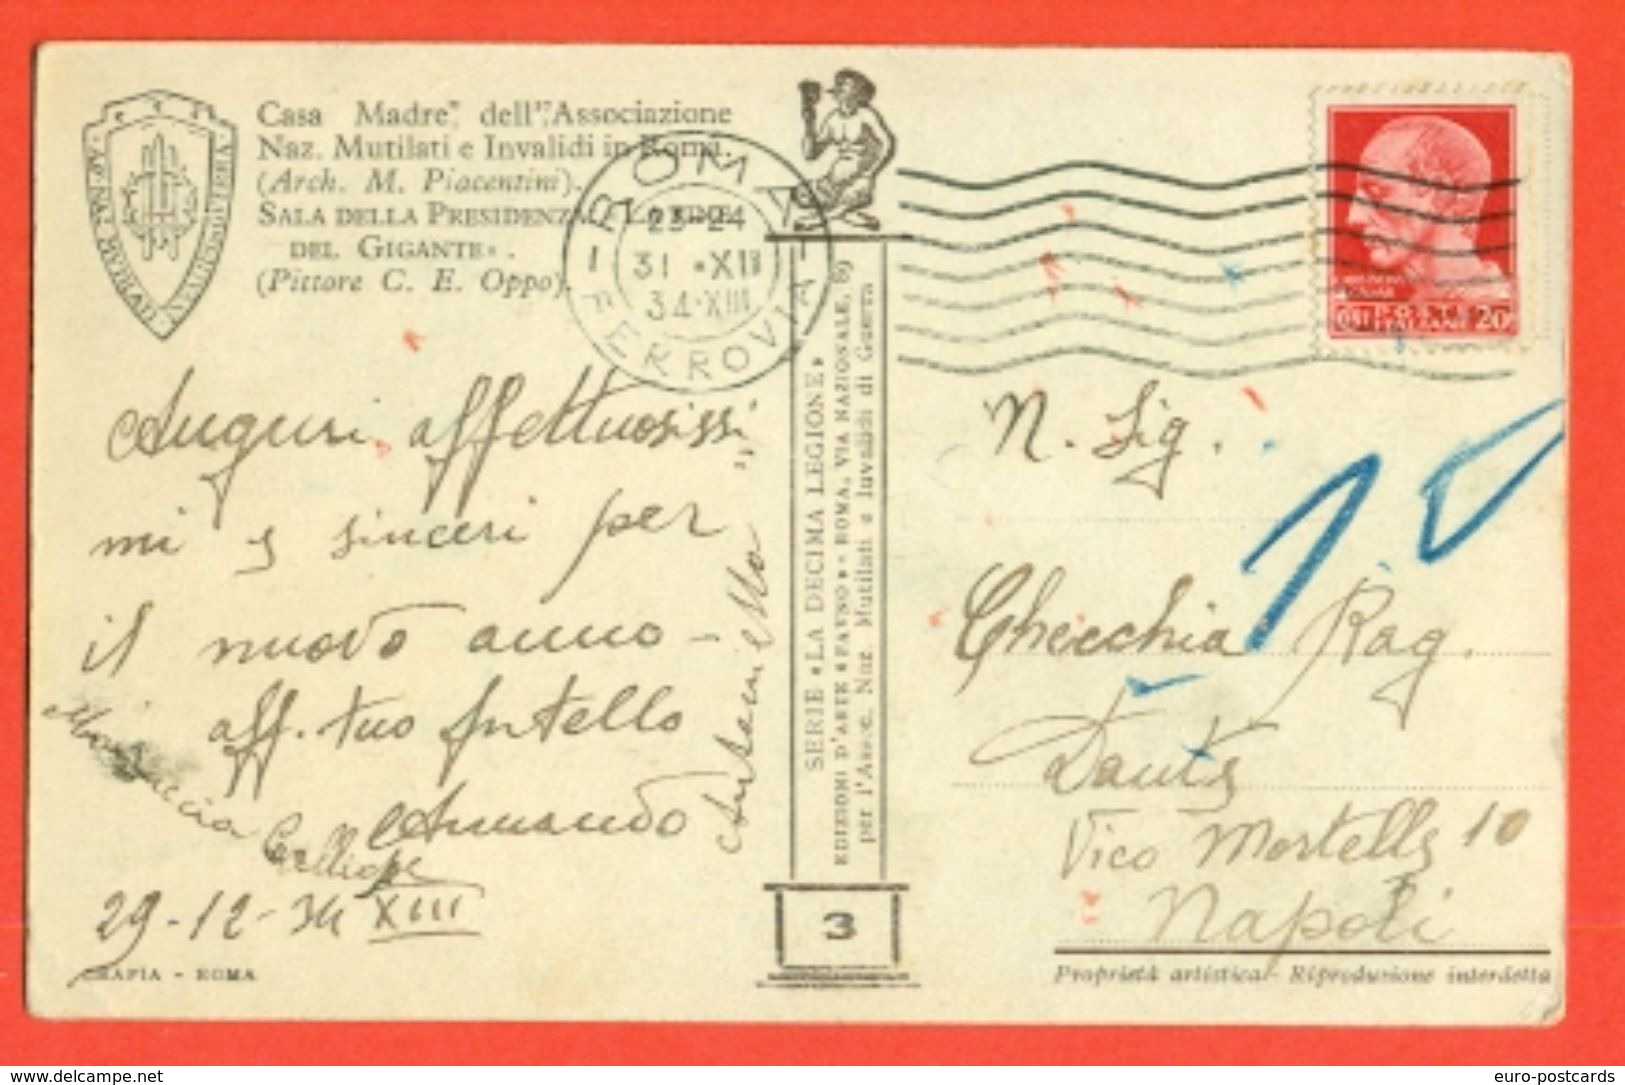 Casa Madre" dell'"Associazione
Naz. Mutilati e Invalidi in Roma.
(Arch. M. Piacentini).
SALA DELLA PRESIDENZA
DEL GIGANTE».
(Pittore C. E. Oppo).
ROMA
FERROVIA
23-24
31 •XII
34•XIII
Auguri affettuosissi
mi e sinceri per
il nuovo anno -
aff. tuo fratello
Armando
Calliope
29-12-34 XIII
GRAFIA - ROMA
SERIE «LA DECIMA LEGIONE»
EDIZIONI D'ARTE «FAUNO» - ROMA, VIA NAZIONALE, 89
per l'Assoc. Naz. Mutilati e Invalidi di Guerra
3
20
N. Sig.
10
Checchia Rag.
Dante
Vico Mortelle 10
Napoli
Proprietà artistica - Riproduzione interdetta
www.delcampe.net
euro-postcards